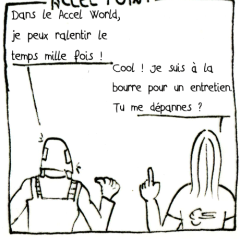 Dans le Accel World,
je peux ralentir le
temps mille fois !
Cool ! Je suis à la
bourre pour un entretien.
Tu me dépannes ?